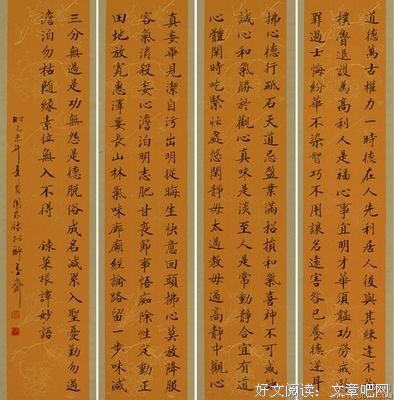 道德萬古權力一時德在人先利居人後與其練達不若
樸魯退設為高利人是福心事宜明才華須韞功勞戒
罪過士悔紛華不染智巧不用讓名遠害咎己養德逆耳
拂心德行砥石天道忌盈業滿招損和氣喜神不可或
誠心和氣勝於觀心真味是淡至人是常動靜合宜有道
心體閒時吃緊忙處悠閒靜毋太過教毋過高靜中觀心
真妄畢見潔自污出明從晦生快意回頭拂心莫放降服
客氣消殺妄心澹泊明志肥甘喪節事悟痴除性定動正
田地放寬惠澤要長山林氣味廊廟經論路留一步味減
三分無過是功無怨是德脫俗成名減累入聖憂勤勿過
澹泊勿枯隨緣素位無入不得 錄菜根譚妙語
年夏月
好文阅读：文章吧网